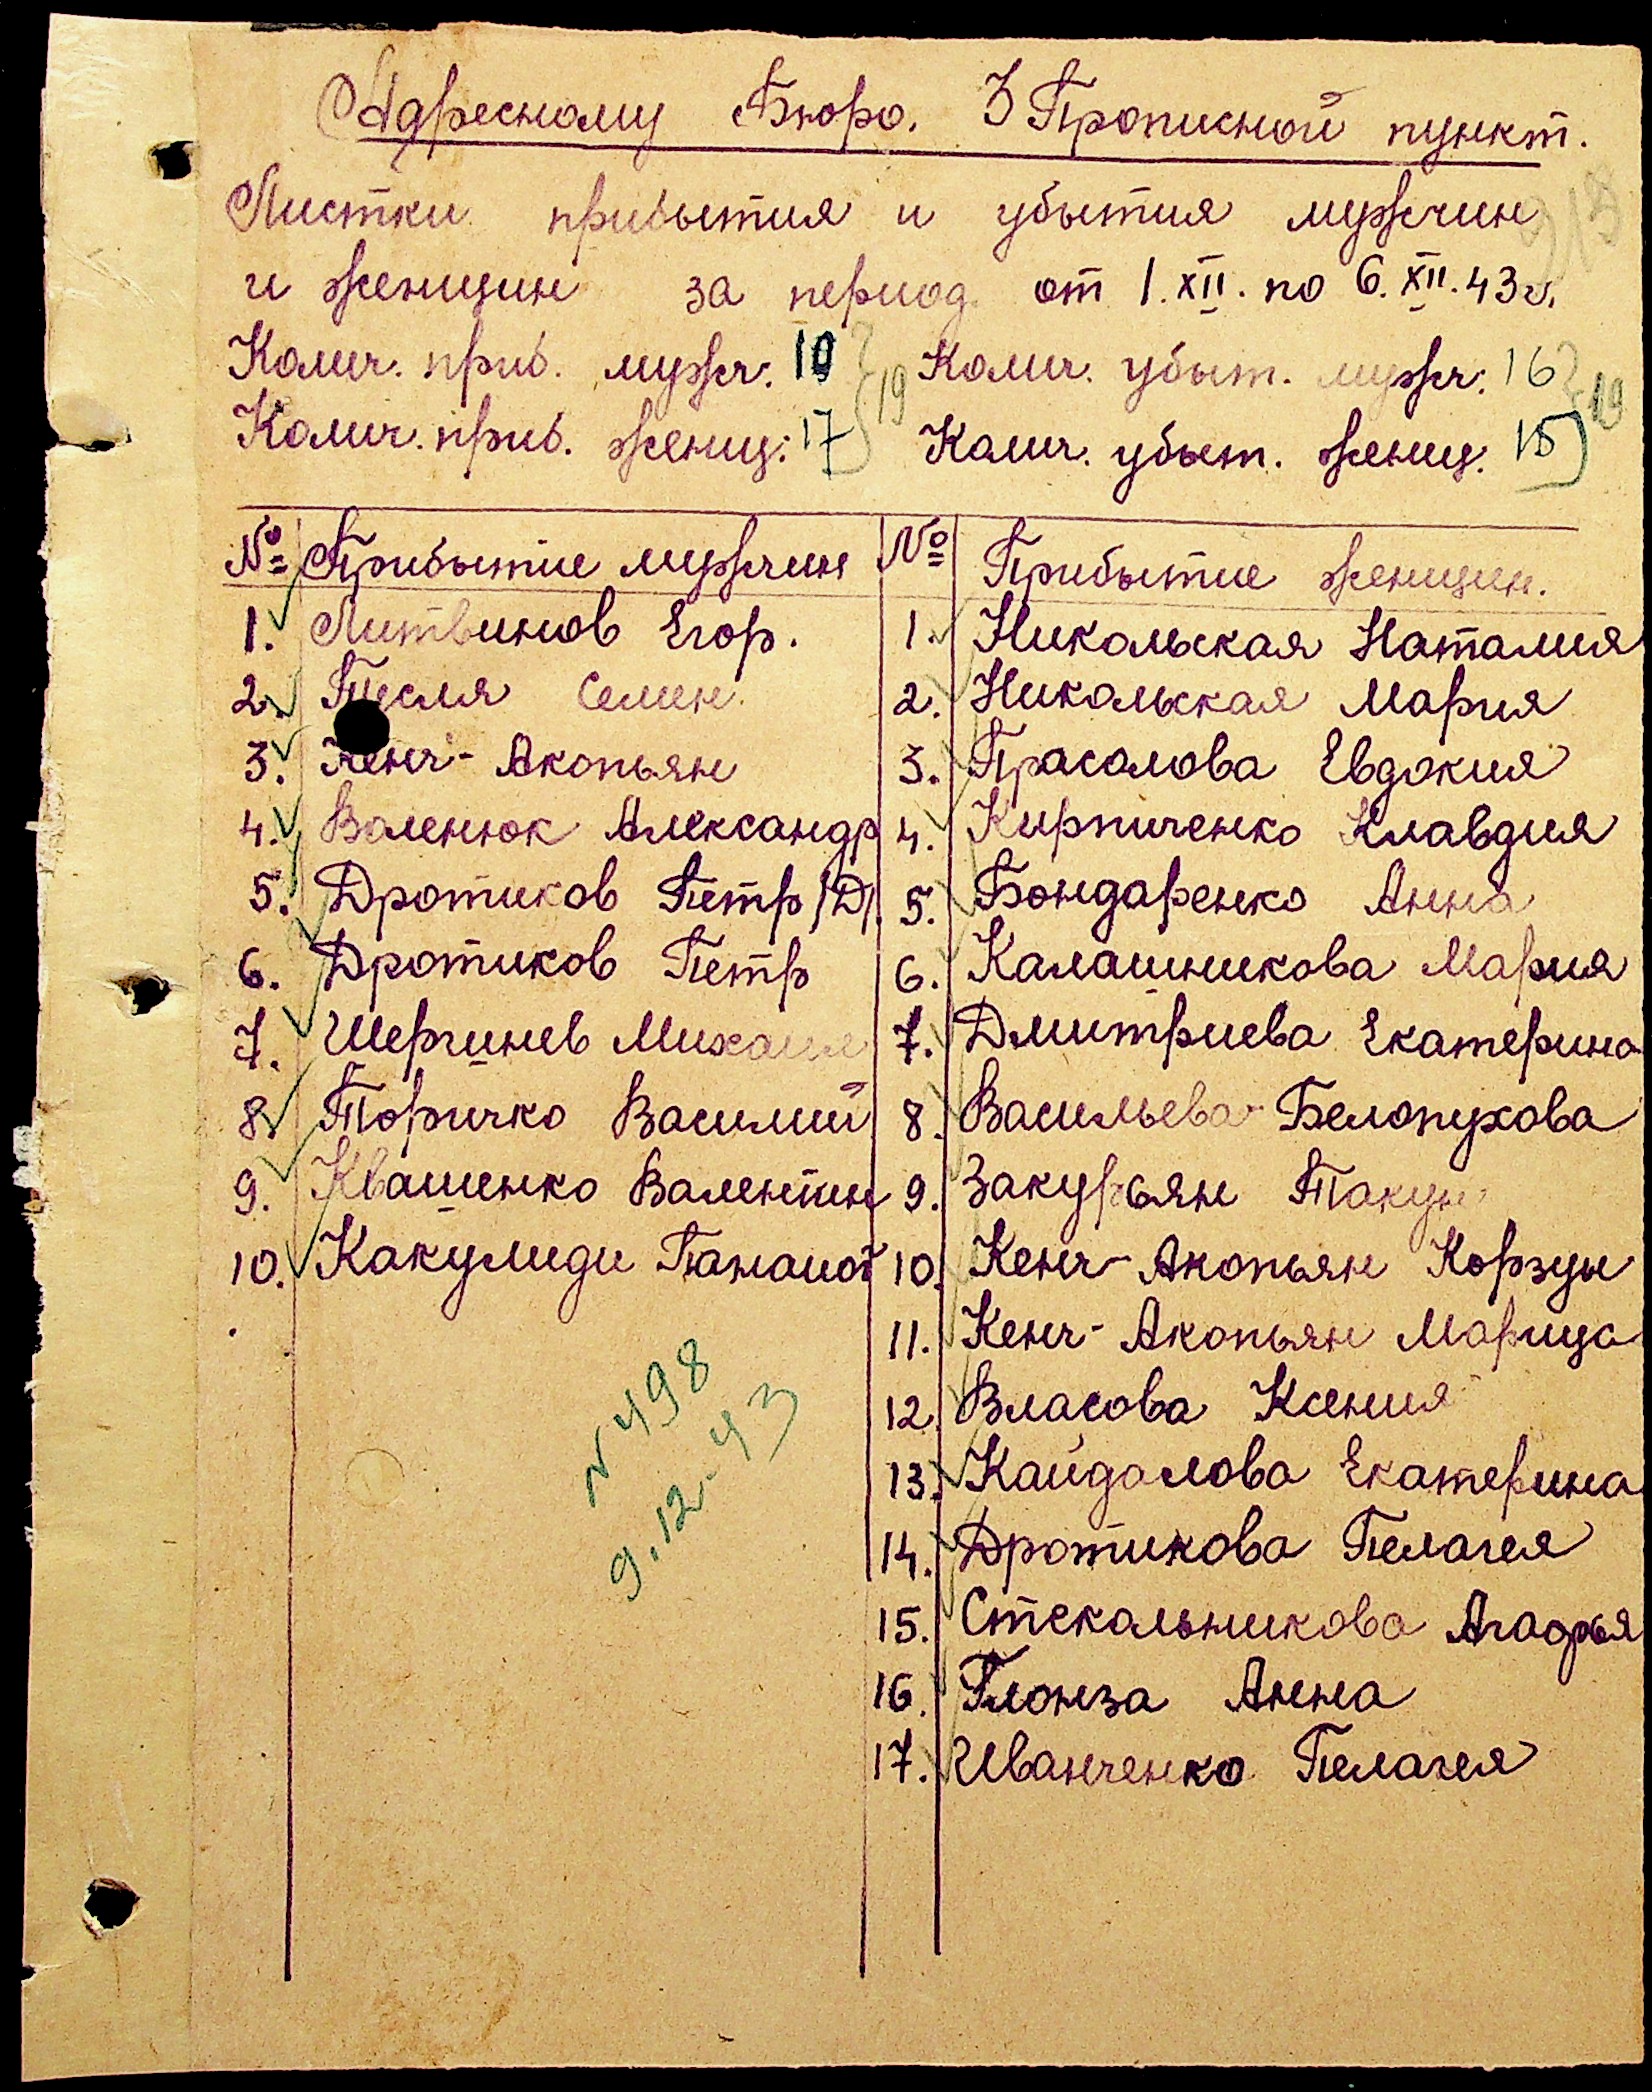 Адресному Бюро. 3 Прописной пункт.
Листки прибытия и убытия мужчин
и женщин за период от 1.XII. по 6.XII.43г.
Колич. приб. мужч: 10 Колич. убыт. мужч: 16
19 19
Колич. приб. женщ: 17 Колич. убыт. женщ: 15
№ Прибытие мужчин № Прибытие женщин.
1. Литвинов Егор. 1. Никольская Наталия
2. Тесля Семен. 2. Никольская Мария
3. Кенч-Акопьян 3. Прасолова Евдокия
4. Валенюк Александр 4. Кирпиченко Клавдия
5. Дротиков Петр /Д/. 5. Бондаренко Анна
6. Дротиков Петр 6. Калашникова Мария
7. Шергинев Михаил 7. Дмитриева Екатерина
8. Торичко Василий 8. Васильева-Белопухова
9. Квашенко Валентин 9. Закурьян Такун
10. Какулиди Панаиот 10. Кенч-Акопьян Корзун
11. Кенч-Акопьян Марица
12. Власова Ксения
13. Кайдалова Екатерина
14. Дротикова Пелагея
15. Стекольникова Агафья
16. Глонза Анна
17. Иванченко Пелагея
N 498
9.12-43